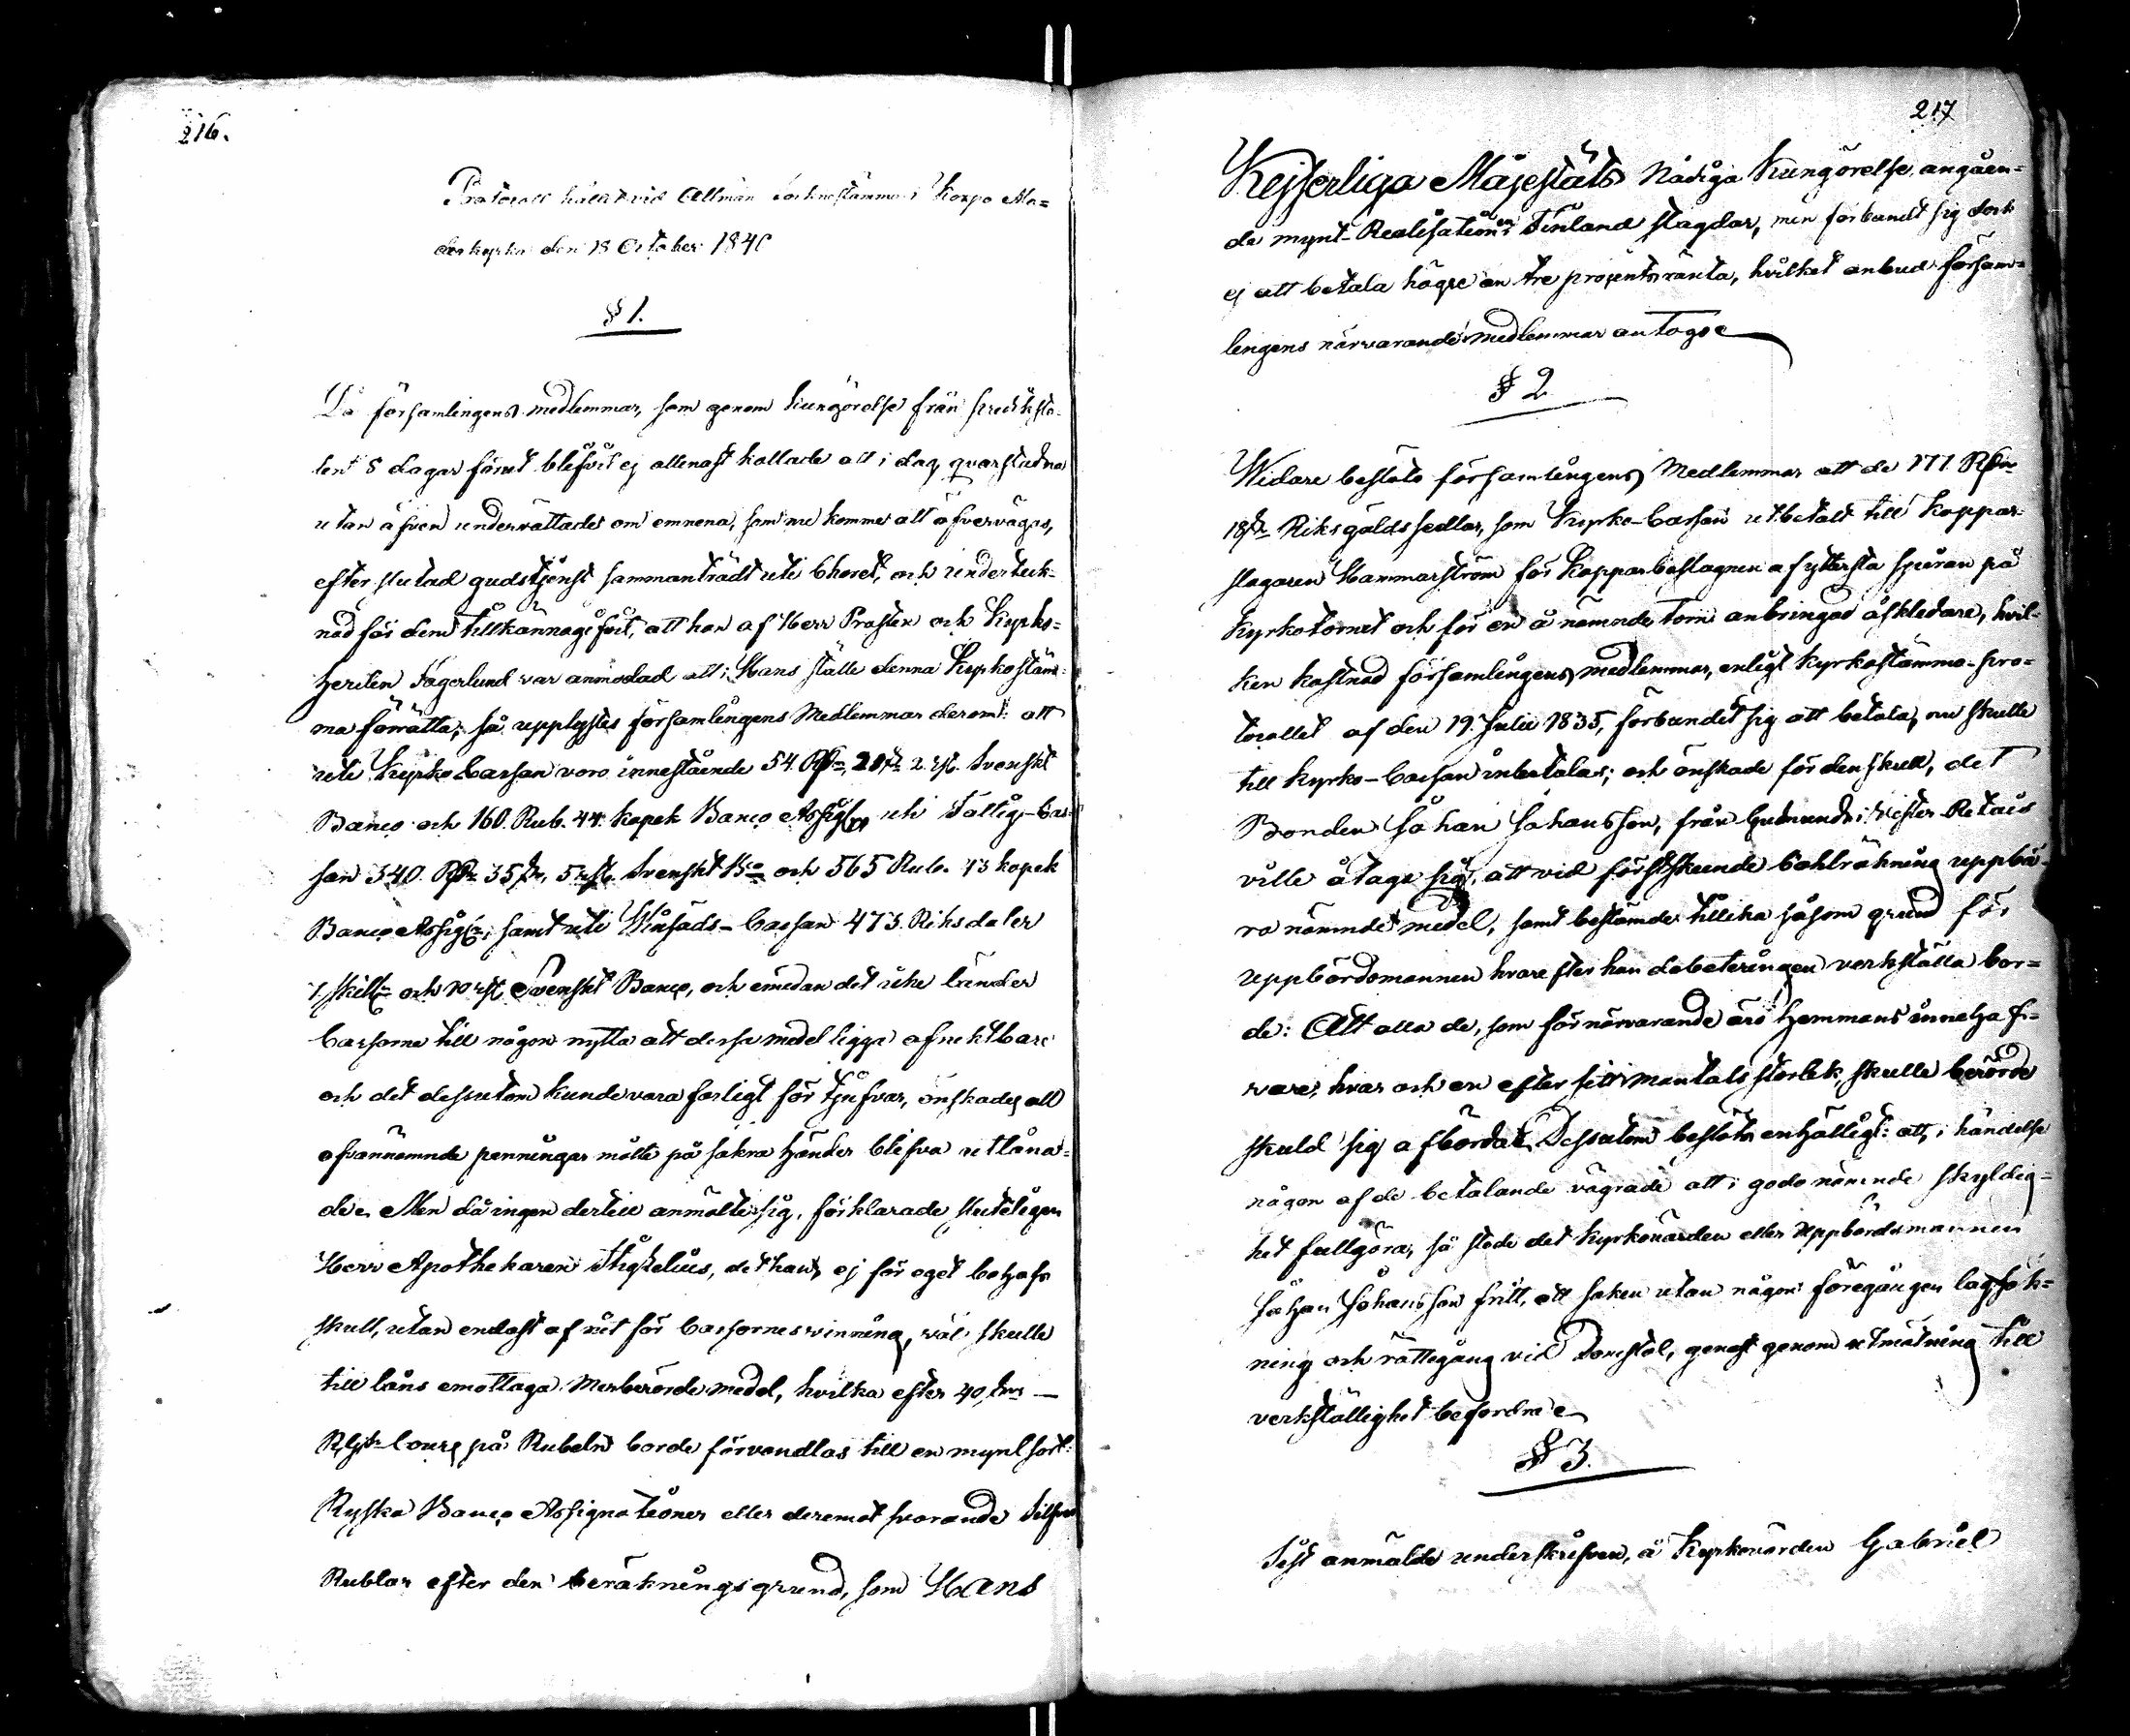 216.
Protocoll hållit vid Allmän Socknestämma i Korpo Mo=
derkyrka den 18 October 1840
§ 1.
Då församlingens medlemmar, som genom kungörelse från prediksto-
len 8 dagar förut blifvit ej allenast kallade att i dag qvarstadna
utan äfven underrättade om emnena, som nu komme att öfvervägas,
efter slutad gudstjenst sammanträdt uti Choret, och underteck-
nad för dem tillkännagifvit, att han af Herr Prosten och Kyrko=
herden Fagerlund var anmodad att i Hans ställe denna Kyrkostäm=
ma förrätta; så upplystes församlingens Medlemmar derom: att
uti Kyrko Cassan voro innestående 54. Rdr, 20 sk. 2. rst. Svenskt
Banco och 160. Rub. 44. kopek Banco Assign uti Fattig-Cas-
san 340. Rdr 35 sk, 5 rst. Svenskt Bco och 565 Rub. 43 kopek
Banco Assign; samt uti Krÿsåds-Cassan 473. Riksdaler
7. skill och 10 rst Svenskt Banco, och emedan det icke länder
Cassorna till någon nytta att dessa medel ligga ofruktbare
och det dessutom kunde vara farligt för tjufvar, önskades att
ofvannämnde penningar måtte på säkra händer blifva utlåna=
de. Men då ingen dertill anmälte sig, förklarade sluteligen
Herr Apothekaren Stigzelius, det han, ej för eget behofs
skull, utan endast af nit för Cassornes vinning, väl skulle
till låns emottaga merberörde medel, hvilka efter 40,
Rgds Cours på Rubeln borde förvandlas till en myntsort:
Ryska Banco Assignationer eller deremot svarande Silfver
Rublar efter den beräkningsgrund, som Hans
217
Kejserliga Majestäts Nådiga Kungörelse angåen=
de mynt-Realisationen i Finland stagdar, men förbandt sig dock
ej att betala högre än tre procents ränta, hvilket anbud försam=
lingens närvarande medlemmar antogo
§ 2
Widare beslöto församlingens Medlemmar att de 177. Rdr
18 sk Riksgäldssedlar, som Kyrko-Cassan utbetalt till Koppar-
slagaren Hammarström för Kopparbeslagnin af yttersta spiran på
Kyrkotornet och för en å nämnde torn anbringad åskledare, hvil-
ken kostnad församlingens medlemmar, enligt Kyrkostämmo-pro=
tocollet af den 19. Julii 1835, förbundet sig att betala, nu skulle
till Kyrko-Cassan inbetalas; och önskade för den skull, det
Bonden Johan Johansson, från Gudmunds i Vister Retais
ville åtaga sig, att vid förstskeende Bohlräkning uppbä-
ra nämnde medel, samt bestämdes tillika såsom grund för
uppbördsmannen hvarefter han debeteringen verkställa bor=
de: Att alla de, som för närvarande äro Hemmans innehaf=
vare, hvar och en efter sitt mantals storlek, skulle berörde
skuld sig afbörda. Dessutom beslöts enhälligt: att, i händelse
någon af de betalande vägrade att i godo nämnde skyldig=
het fullgöra, så stode det Kyrkovärden eller Uppbördsmannen
Johan Johansson fritt, att saken utan någon föregången lagsök=
ning och rättegång vid Domstol, genast genom utmätning till
verkställighet befordra
§ 3.
Sist anmälde underskrifven, å Kyrkovärden Gabriel